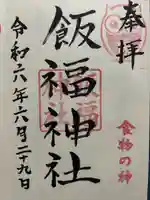 奉拝
食物の神
飯福神社
令和六年六月二十九日